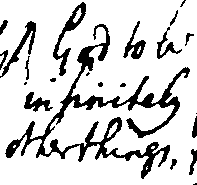 God to be
infinitely
other things,